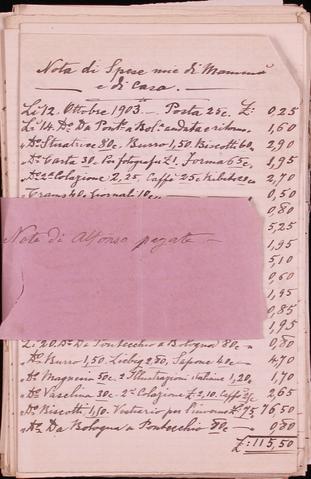 Nota di Spese mie di Mammà
e di Casa.
Li 12. Ottobre 1903. - Posta 25c. £: 0,25
Li 14. Dº Da Pontº a Bolª andata e ritorno. 1,60
" Dº Stiratrice 80c. Burro 1,50. Biscotti 60c 2,90
" Dº Carta 30. Per fotografie £1. Forma 65c. 1,95
" Dº 2ª Colazione 2,25. Caffè 25c 2,70
Trams 40. Giornali 10c 0,50
0,80
5,25
Note di Alfonso pagate - 1,95
5,10
0,60
1,95
0,85
1,95
Li 20. Dº Da Pontecchio a Bologna 80c - 0,80
" Dº Burro 1,50. Liebig 2,80, Sapone 40c - 4,70
" Dº Magnesia 50c. 2 Illustrazioni italiane 1,20c 1,70
" Dº Vaselina 30c - 2ª Colazione £ 2,10. Caffè 25c 2,65
" Dº Biscotti 1,50. Vestiario per £ 75 76,50
" Dº Da Bologna a Pontecchio 80c - 0,80
£: 115,50